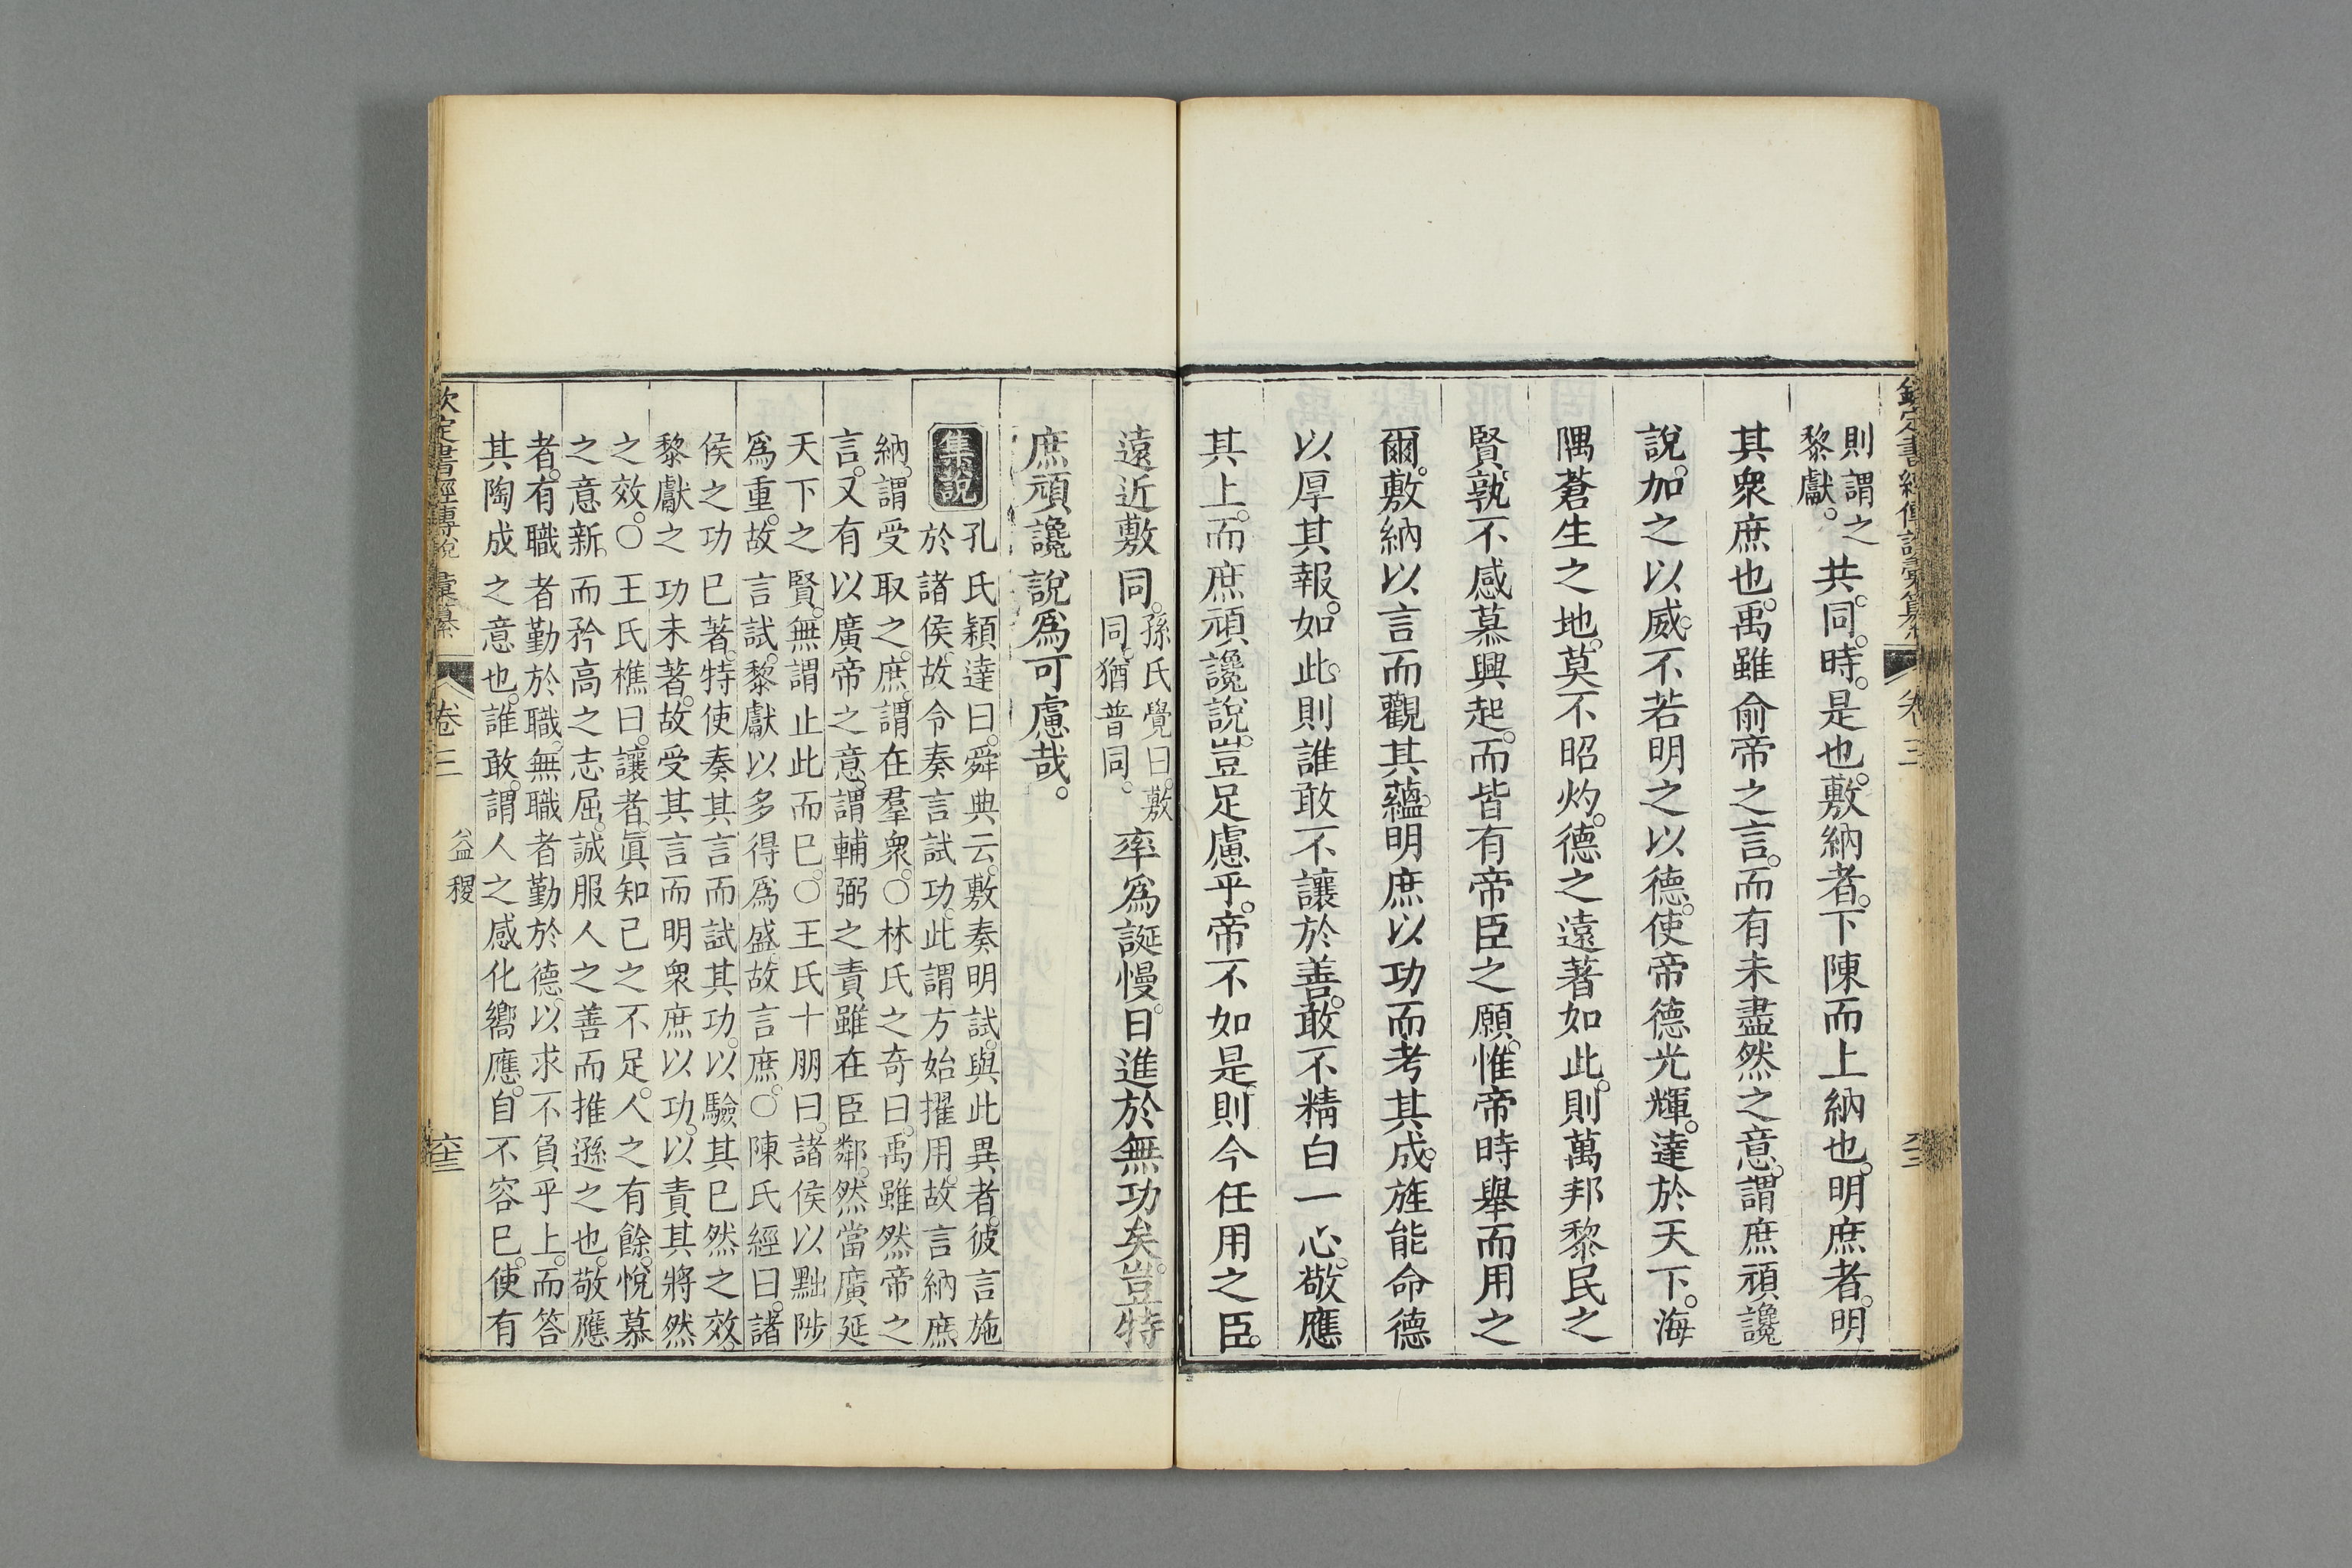 欽定書經傳說彙纂 卷三 六二
則謂之
黎獻。
共。同。時。是也。敷納者。下陳而上納也。明庶者。明
其衆庶也。禹雖俞帝之言。而有未盡然之意。謂庶頑讒
說。加之以威。不若明之以德。使帝德光輝。達於天下。海
隅蒼生之地。莫不昭灼。德之遠著如此。則萬邦黎民之
賢。孰不感慕興起。而皆有帝臣之願。惟帝時舉而用之
爾。敷納以言而觀其蘊。明庶以功而考其成。旌能命德
以厚其報。如此。則誰敢不讓於善。敢不精白一心。敬應
其上。而庶頑讒說。豈足慮乎。帝不如是。則今任用之臣。
遠近敷同。
孫氏覺曰。敷
同。猶普同。
率爲誕慢。日進於無功矣。豈特
庶頑讒說爲可慮哉。
集說
孔氏穎達曰。舜典云。敷奏明試。與此異者。彼言施
於諸侯。故令奏言試功。此謂方始擢用。故言納庶。
納。謂受取之。庶。謂在羣衆。○林氏之奇曰。禹雖然帝之
言。又有以廣帝之意。謂輔弼之責雖在臣鄰。然當廣延
天下之賢。無謂止此而已。○王氏十朋曰。諸侯以黜陟
爲重。故言試。黎獻以多得爲盛。故言庶。○陳氏經曰。諸
侯之功已著。特使奏其言而試其功。以驗其已然之效。
黎獻之功未著。故受其言而明衆庶以功。以責其將然
之效。○王氏樵曰。讓者。眞知己之不足。人之有餘。悅慕
之意新。而矜高之志屈。誠服人之善而推遜之也。敬應
者。有職者勤於職。無職者勤於德。以求不負乎上。而答
其陶成之意也。誰敢。謂人之感化嚮應。自不容已。使有
欽定書經傳說彙纂 卷三 益稷 六三